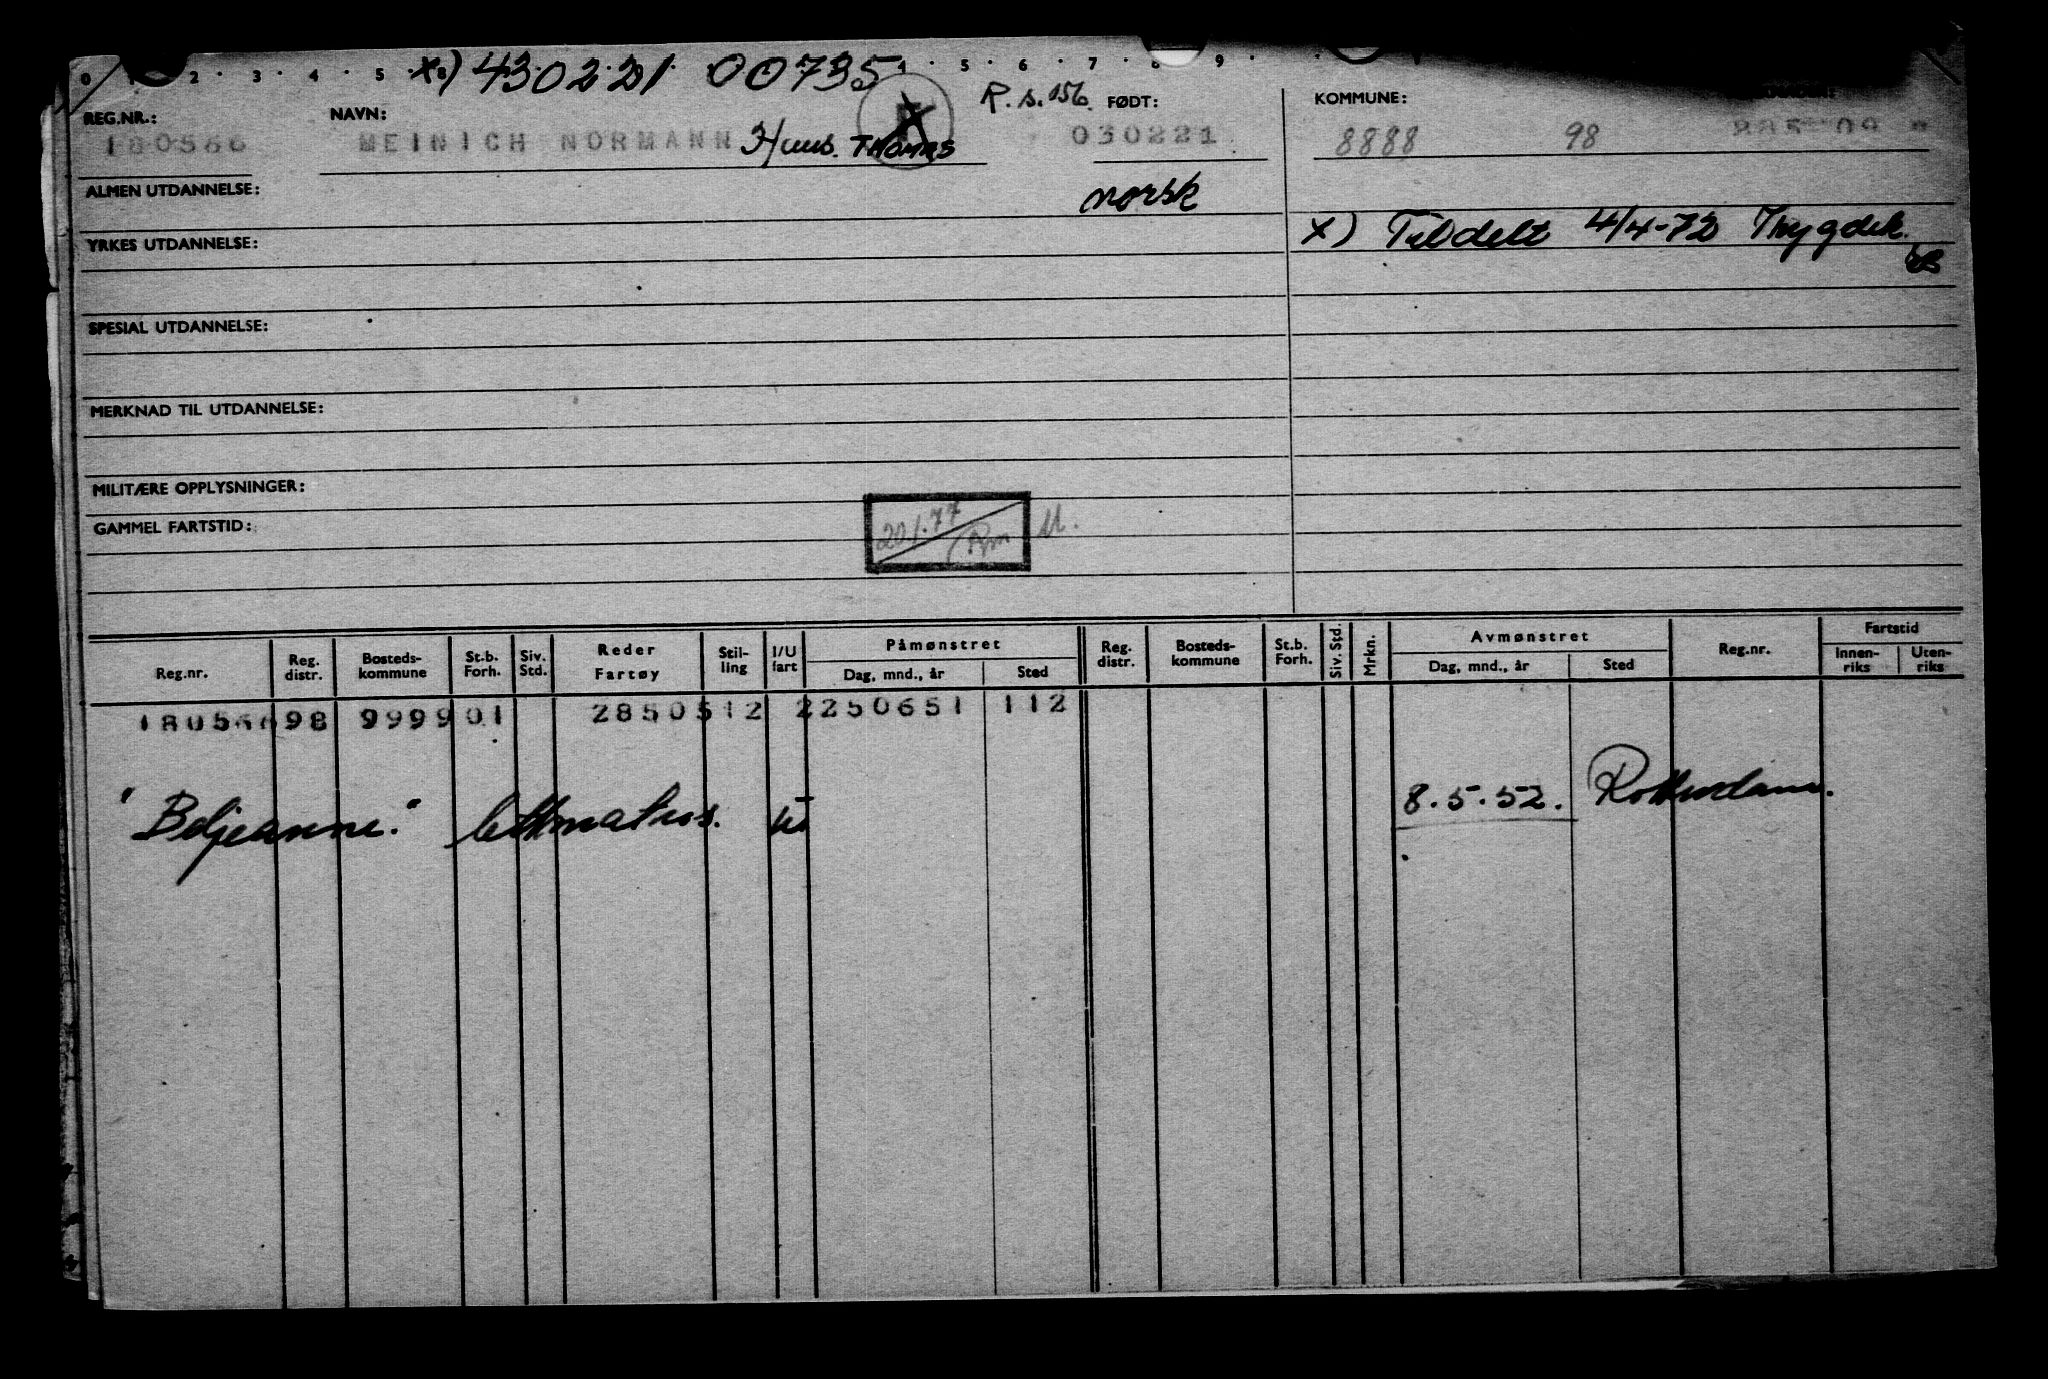 0 1 . 2 . 3 . 4 . 5 . x) 430221 00735 4 . 5 . 6 . 7 . 8 . 9 .
R.s.156.
REG.NR.: NAVN: FØDT: KOMMUNE:
180566 MEINICH NORMANN Hans. THOMAS 030221 8888 98
ALMEN UTDANNELSE: norsk
YRKES UTDANNELSE: x) Tildelt 4/4-72 Trygdek.
SPESIAL UTDANNELSE:
MERKNAD TIL UTDANNELSE:
MILITÆRE OPPLYSNINGER:
GAMMEL FARTSTID: 20/1.77
Reg.nr. Reg. distr. Bosteds-kommune St.b. Forh. Siv. Std. Reder Fartøy Stil-ling I/U fart Påmønstret Dag, mnd., år Sted Reg. distr. Bosteds-kommune St.b. Forh. Siv. Std. Mrkn. Avmønstret Dag, mnd., år Sted Reg.nr. Fartstid Innen-riks Uten-riks
180566 98 9999 01 28505 12 2 250651 112
"Beljeanne." lettmatros. U 8.5.52. Rotterdam.